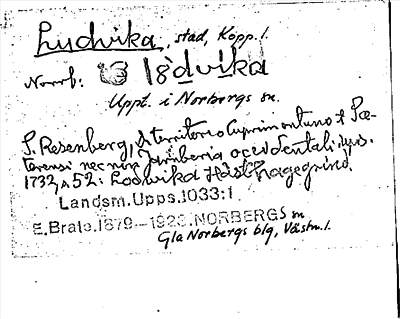 Ludvika, stad, Kopp. l.
Norrb: lădvika
Uppt. i Norbergs sn.
S. Resenberg, de territorio Cuprimontano &
terensi nec non Jernberia occidentali, ms.
1732, s 52: Lodwika Häst hagegrind.
Landsm.Upps.1033:1
E.Brate.1879-1923.NORBERGS sn
Gla Norbergs blg, Västm. l.